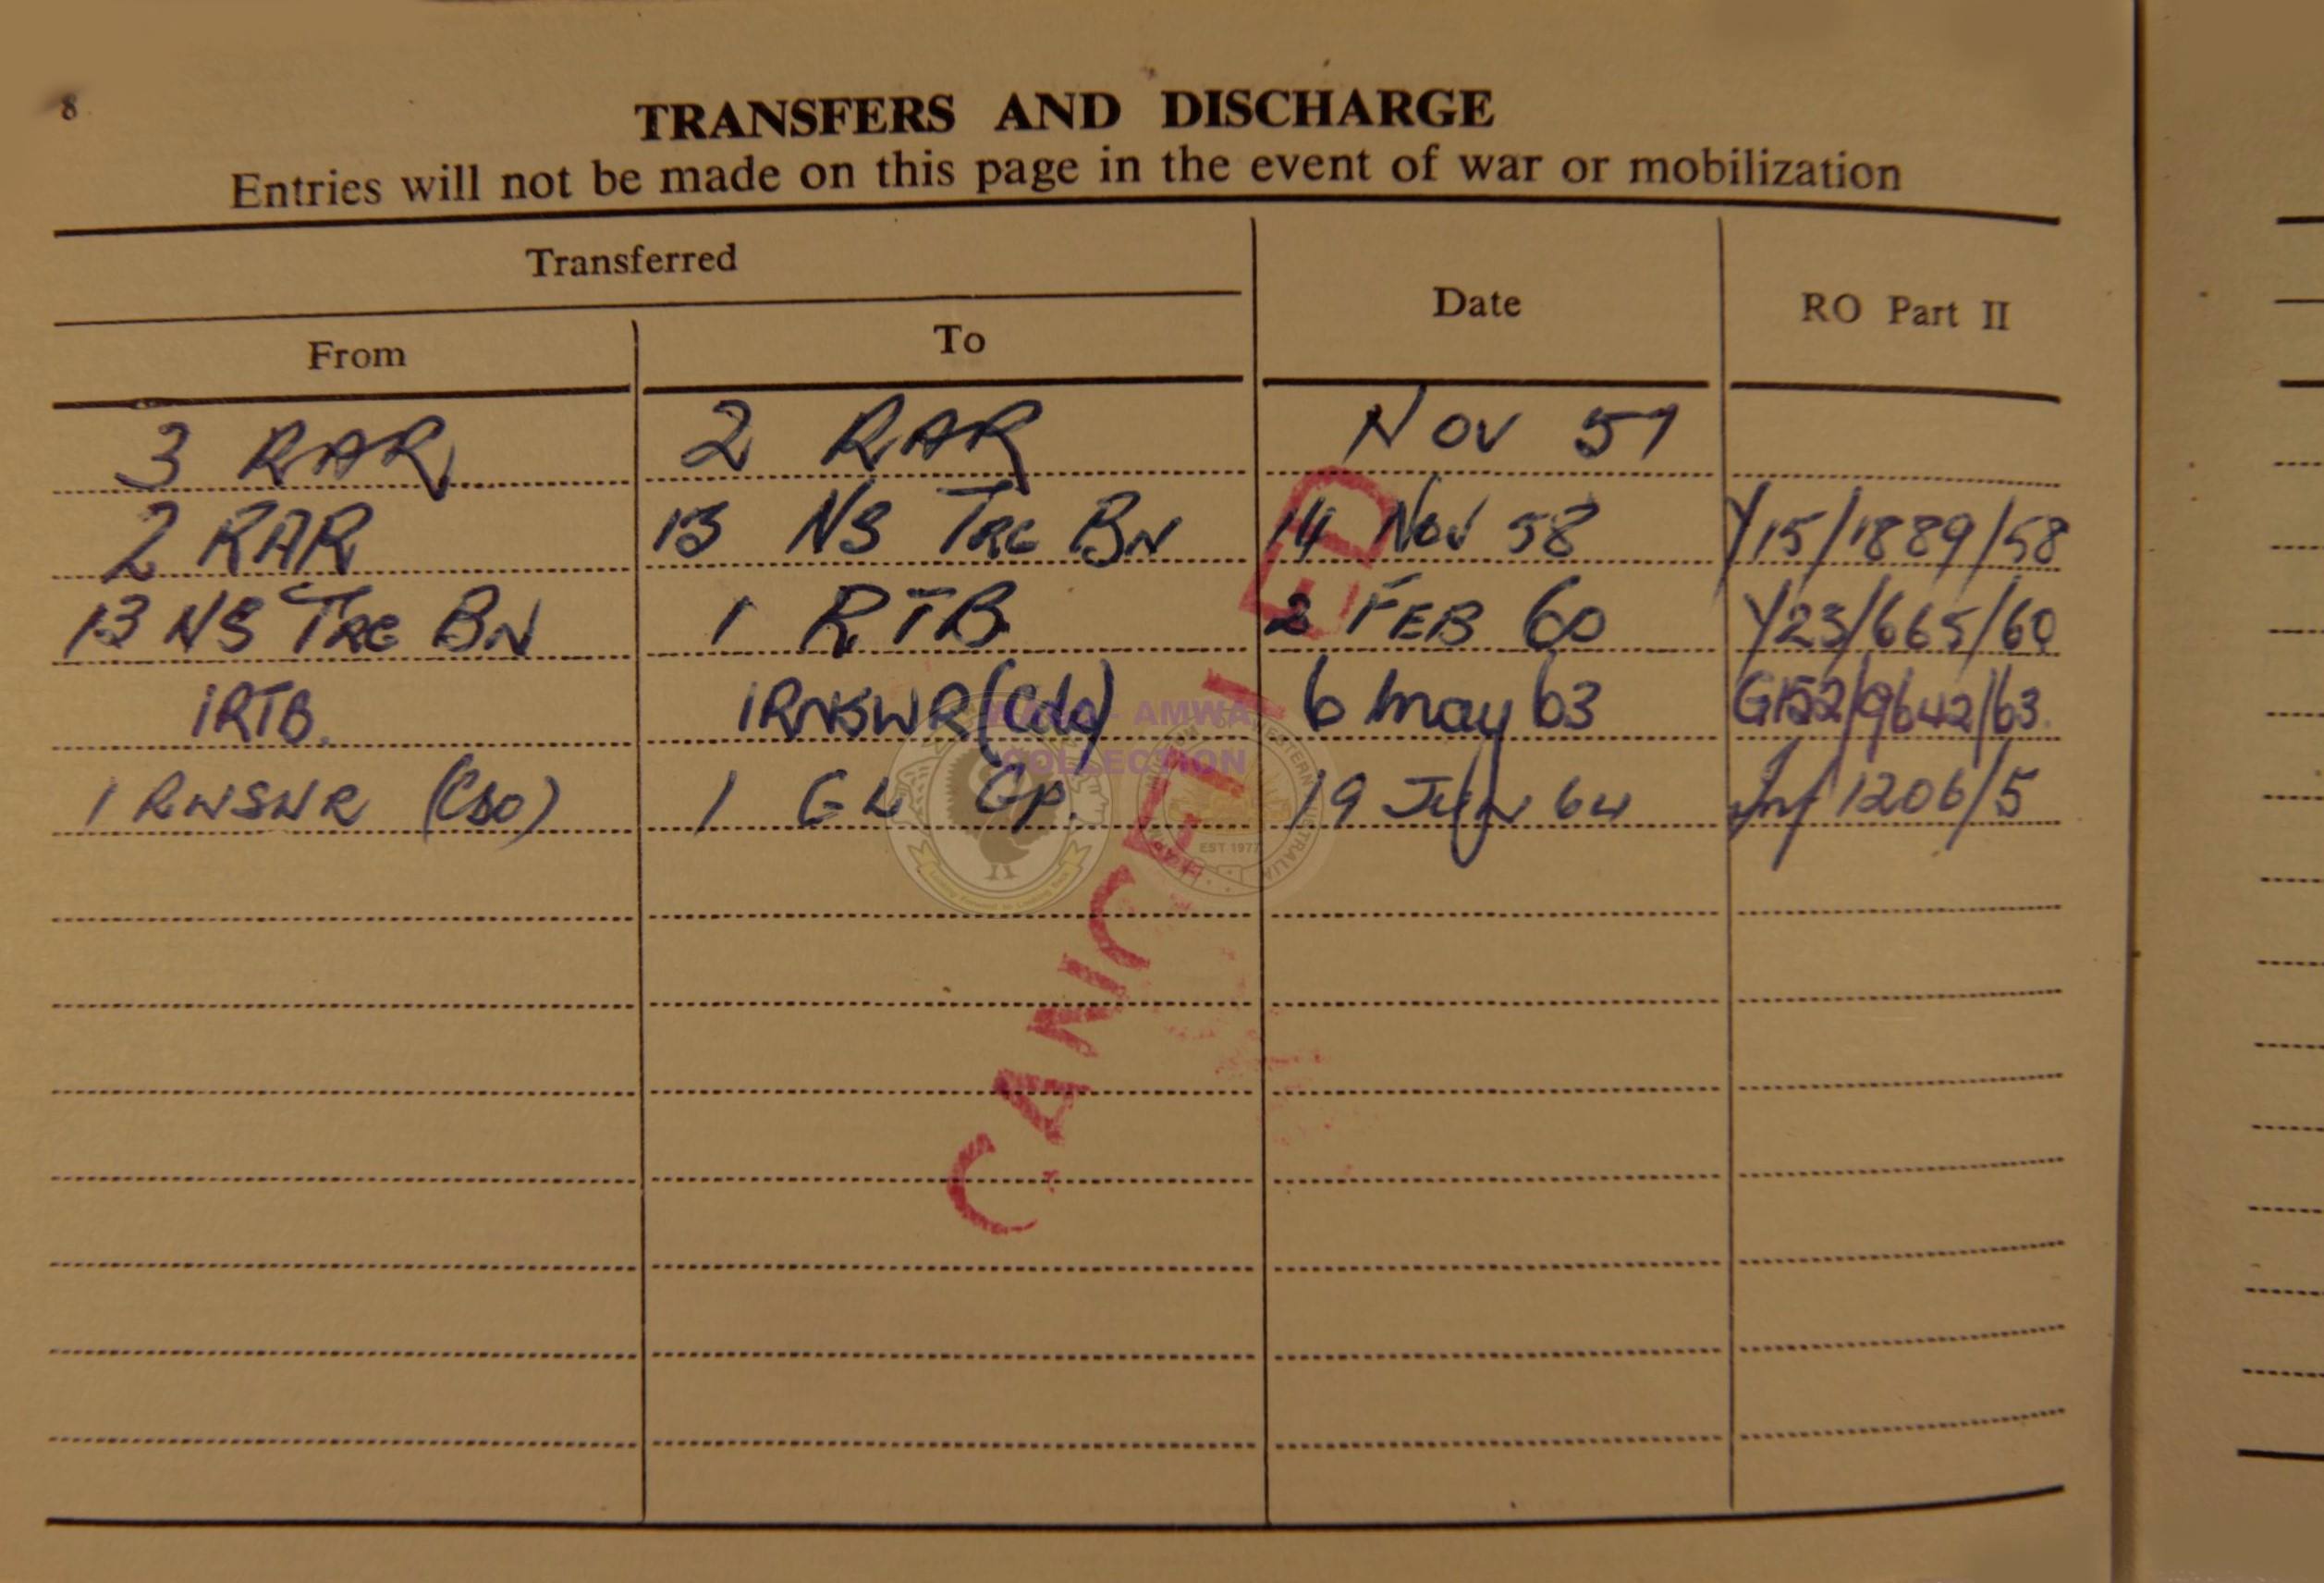 8
TRANSFERS AND DISCHARGE
Entries will not be made on this page in the event of war or mobilization
Transferred
Date
RO Part II
From
To
3 RAR 2 RAR Nov 57
2 RAR 13 NS TRG BN 14 Nov 58 Y15/1889/58
13 NS TRG BN 1 RTB 2 FEB 60 Y23/665/60
1RTB. 1RNSWR (Cdo) 6 May 63 G152/9642/63
1 RNSWR (CDO) 1 GL Gp. 19 Jun 64 Inf 1206/5
CANCELLED
AMWA
COLLECTION
WESTERN AUSTRALIA
EST 1977